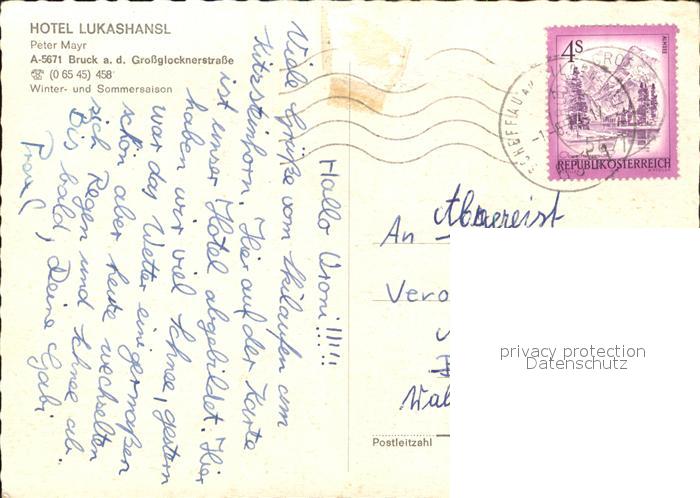 HOTEL LUKASHANSL
Peter Mayr
A-5671 Bruck a. d. Großglocknerstraße
☎ (0 65 45) 458
Winter- und Sommersaison
Hallo Vroni!!!!
Viele Grüße vom Skilaufen am
Kitzsteinhorn. Hier auf der Karte
ist unser Hotel abgebildet. Hier
haben wir viel Schnee, gestern
war das Wetter einigermaßen
schön aber heute wechselten
sich Regen und Schnee ab.
Bis bald, Deine Gabi
4S
ALMSEE
REPUBLIK ÖSTERREICH
An
Vero
Wal
Postleitzahl
privacy protection
Datenschutz